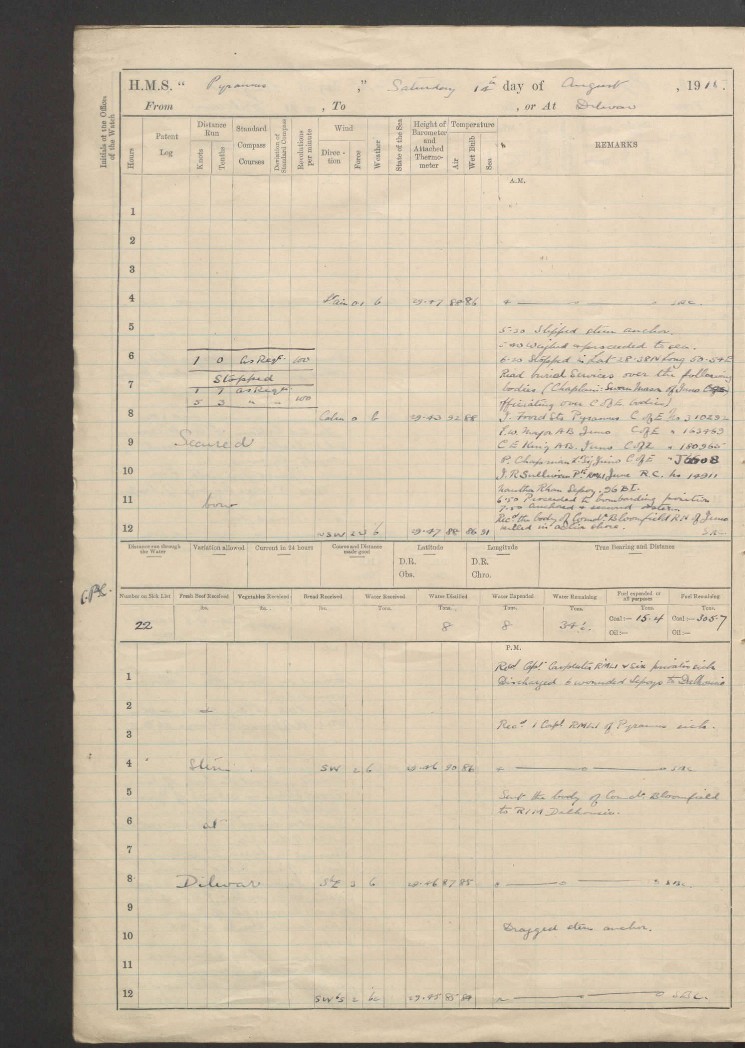 H.M.S. " Pyramus ," Saturday 14th day of August , 1915.
From , To , or At Dilwar
Initials of the Officer of the Watch
Hours
Patent Log
Distance Run
Knots
Tenths
Standard Compass Courses
Deviation of Standard Compass
Revolutions per minute
Wind
Direction
Force
Weather
State of the Sea
Height of Barometer and Attached Thermometer
Temperature
Air
Wet Bulb
Sea
REMARKS
A.M.
1
2
3
4 0-1 b 29.47 86
5 5-30 Slipped stern anchor.
5-40 Weighed & proceeded to sea.
6 1 0 As Reqt 100 6-20 Stopped in Lat 28-28N Long 50-54E
Stopped Read burial services over the following
7 1 7 As Reqt bodies (Chaplain of Juno
5 3 " " 100 officiating over C of E bodies)
8 Calm 0 b 29.43 92 88 J. Ford Sto Pyramus C of E
9 Secured P.W. Major AB Juno C of E 162463
C E King AB. Juno C of E 180965
10 P. Chapman Juno C of E
J.R Sullivan Pte RMLI Juno R.C. No 14911
Khan Sepoy. 96 BI.
11 bow 6.50 Proceeded to bombarding position
7.50 anchored & secured astern
12 WSW 2-3 b 29.47 88 86 91 Recd the body of Comdr Bloomfield RN of Juno
killed in action shore.
Distance run through the Water
Variation allowed
Current in 24 hours
Course and Distance made good
Latitude
D.R.
Obs.
Longitude
D.R.
Chro.
True Bearing and Distance
Number on Sick List
Fresh Beef Received
lbs.
Vegetables Received
lbs.
Bread Received
lbs.
Water Received
Tons.
Water Distilled
Tons.
Water Expended
Tons.
Water Remaining
Tons.
Fuel expended at all purposes
Tons.
Fuel Remaining
Tons.
22 8 8 34½ Coal:— 15.4 Coal:— 3057
Oil:— Oil:—
P.M.
Recd Capt. Carpenter RMLI & six privates sick
1 Discharged 6 wounded Sepoys to Dalhousie
2
3 Recd 1 Capt RMLI of Pyramus sick.
4 Stern SW 2 b 29.46 90 86
5 Sent the body of Comdr Bloomfield
6 at to RIM Dalhousie.
7
8 Dilwar SbE 3 b 29.46 87 85
9
10 Dragged stern anchor.
11
12 SWbS 2 bc 29.45 85 84